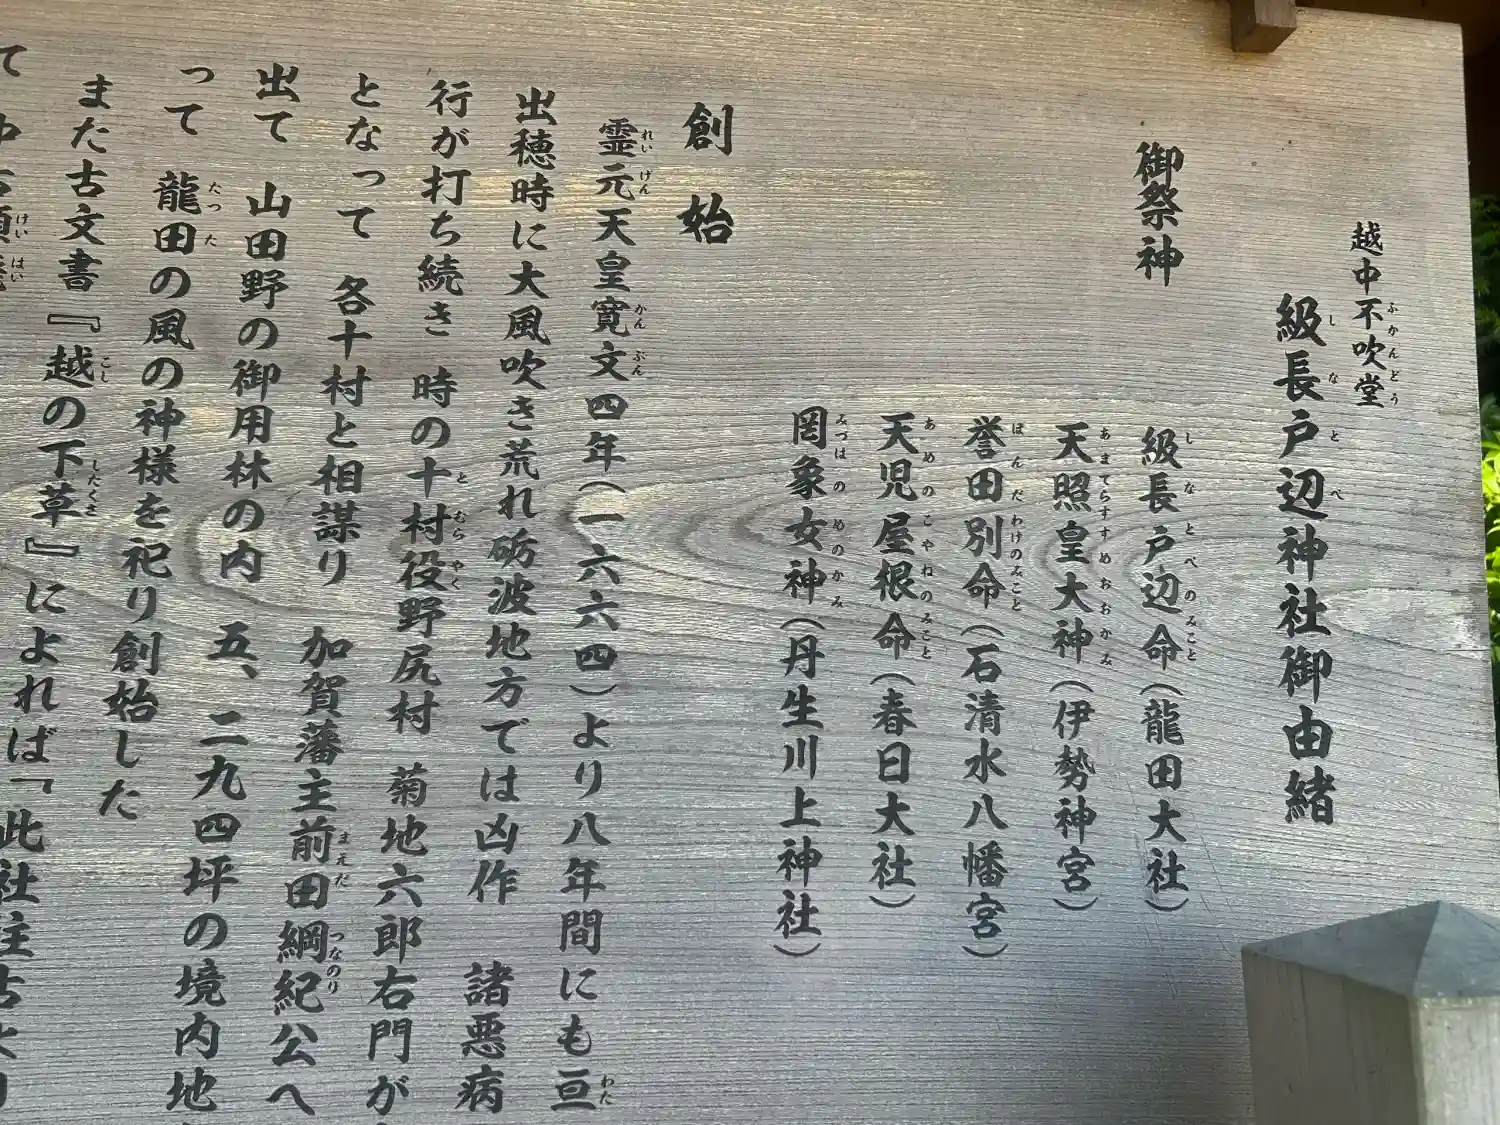 越中不吹堂
級長戸辺神社御由緒
御祭神
級長戸辺命(龍田大社)
天照皇大神(伊勢神宮)
誉田別命(石清水八幡宮)
天児屋根命(春日大社)
罔象女神(丹生川上神社)
創始
霊元天皇寛文四年(一六六四)より八年間にも亘
出穂時に大風吹き荒れ砺波地方では凶作 諸悪病
行が打ち続き 時の十村役野尻村 菊地六郎右門が
となって 各十村と相謀り 加賀藩主前田綱紀公へ
出て 山田野の御用林の内 五、二九四坪の境内地
って 龍田の風の神様を祀り創始した
また古文書『越の下草』によれば「此社往古より